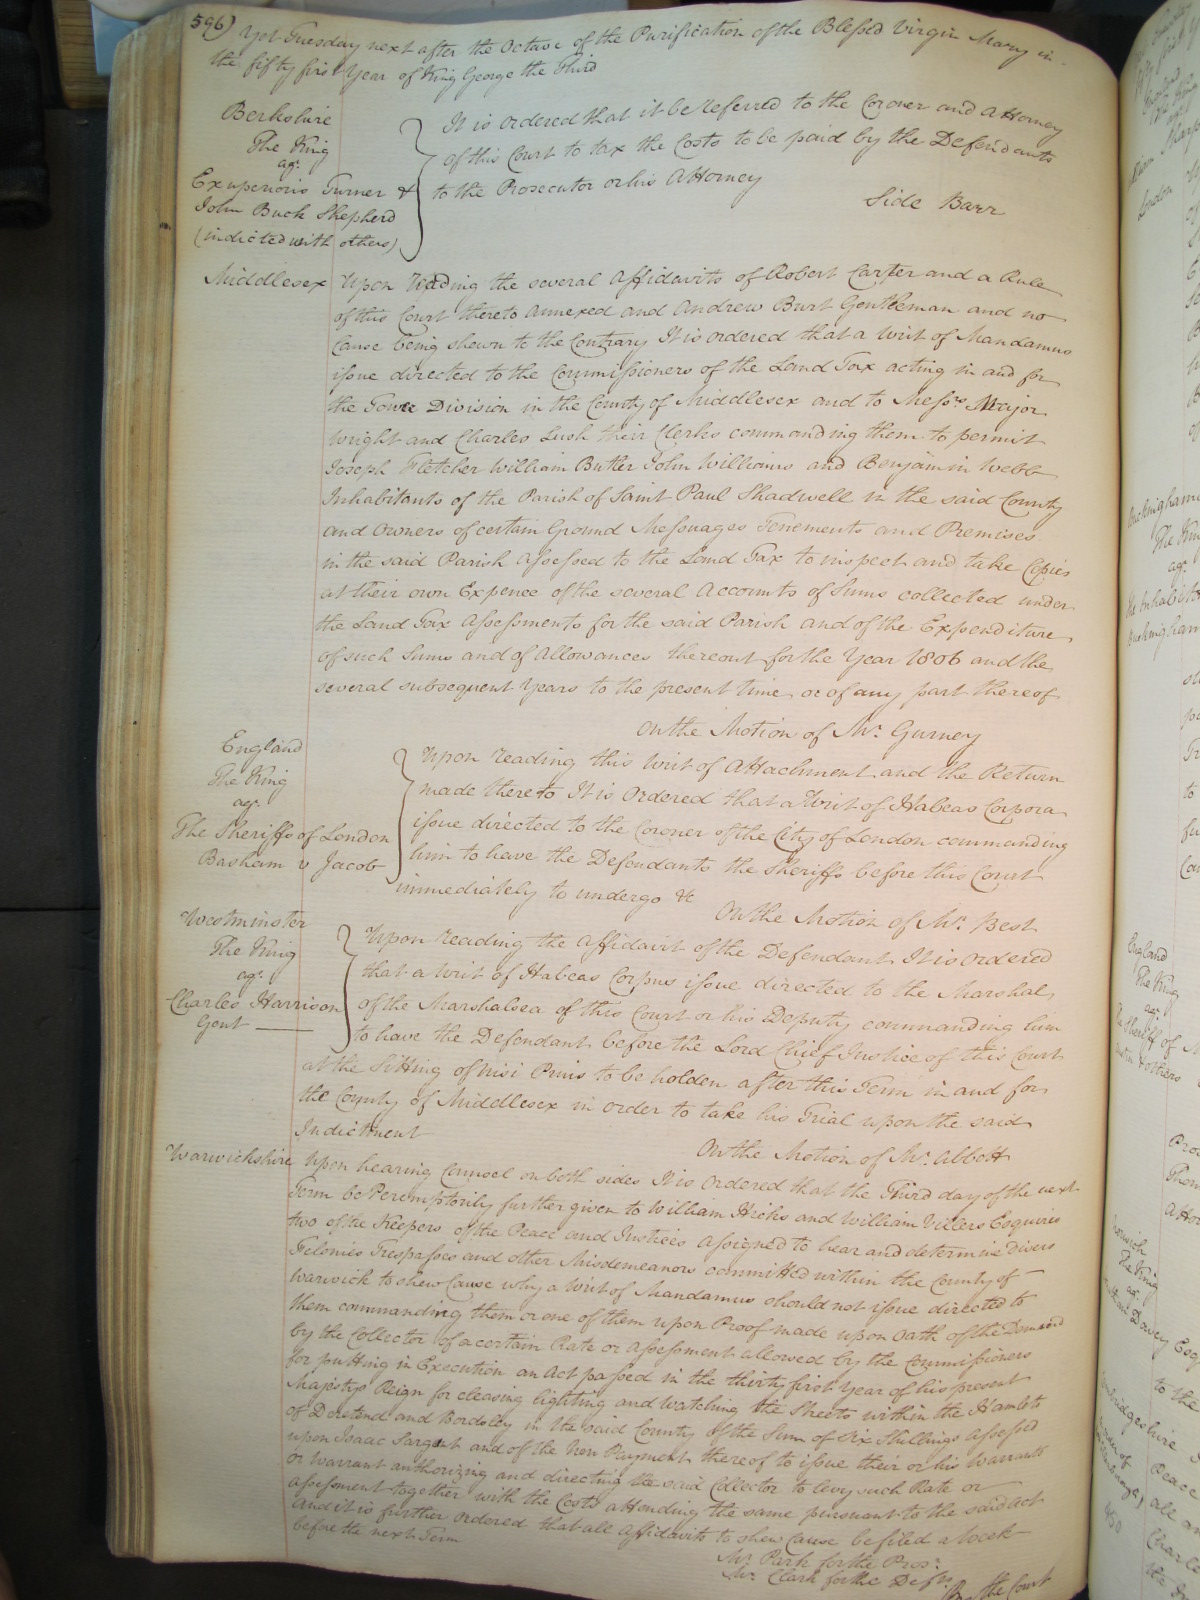 596) Yet Tuesday next after the Octave of the Purification of the Blessed Virgin Mary in
the fifty first Year of King George the Third
Berkshire
The King
agt.
Exuperious Turner &
John Buck Shepherd
(indicted with others)
It is ordered that it be referred to the Coroner and Attorney
of this Court to tax the Costs to be paid by the Defendants
to the Prosecutor or his Attorney
Side Barr
Middlesex Upon reading the several Affidavits of Robert Carter and a Rule
of this Court thereto annexed and Andrew Burt Gentleman and no
Cause being shewn to the Contrary It is ordered that a Writ of Mandamus
issue directed to the Commissioners of the Land Tax acting in and for
the Tower Division in the County of Middlesex and to Messrs. Major
Wright and Charles Lush their Clerks commanding them to permit
Joseph Fletcher William Butler John Williams and Benjamin Webb
Inhabitants of the Parish of Saint Paul Shadwell in the said County
and Owners of certain Ground Messuages Tenements and Premises
in the said Parish assessed to the Land Tax to inspect and take Copies
at their own Expence of the several Accounts of Sums collected under
the Land Tax Assessments for the said Parish and of the Expenditure
of such Sums and of Allowances thereout for the Year 1806 and the
several subsequent Years to the present time or of any part thereof
On the Motion of Mr. Gurney
England
The King
agt.
The Sheriffs of London
Basham v Jacob
Upon reading this Writ of Attachment and the Return
made thereto It is Ordered that a Writ of Habeas Corpora
issue directed to the Coroner of the City of London commanding
him to have the Defendants the Sheriffs before this Court
immediately to undergo &c
On the Motion of Mr. Best
Westminster
The King
agt.
Charles Harrison
Gent
Upon reading the Affidavit of the Defendant It is Ordered
that a Writ of Habeas Corpus issue directed to the Marshal
of the Marshalsea of this Court or his Deputy commanding him
to have the Defendant before the Lord Chief Justice of this Court
at the Sitting of Nisi Prius to be holden after this Term in and for
the County of Middlesex in order to take his Trial upon the said
Indictment
On the Motion of Mr. Abbott
Warwickshire Upon hearing Counsel on both sides It is Ordered that the Third day of the next
Term be Peremptorily further given to William Hicks and William Villers Esquires
two of the Keepers of the Peace and Justices assigned to hear and determine divers
Felonies Trespasses and other Misdemeanors committed within the County of
Warwick to shew Cause why a Writ of Mandamus should not issue directed to
them commanding them or one of them upon Proof made upon Oath of the Demand
by the Collector of a certain Rate or Assessment allowed by the Commissioners
for putting in Execution an Act passed in the thirty first Year of his present
Majestys Reign for cleasing lighting and watching the Streets within the Hamlets
of Deretend and Bordsley in the said County of the Sum of Six Shillings assessed
upon Isaac Sargent and of the Non Payment thereof to issue their or his Warrants
or Warrant authorizing and directing the said Collector to levy such Rate or
Assessment together with the Costs attending the same pursuant to the said Act
And it is further Ordered that all Affidavits to shew Cause be filed a Week
before the next Term
Mr. Park for the Pros.
Mr. Clark for the Defts.
By the Court